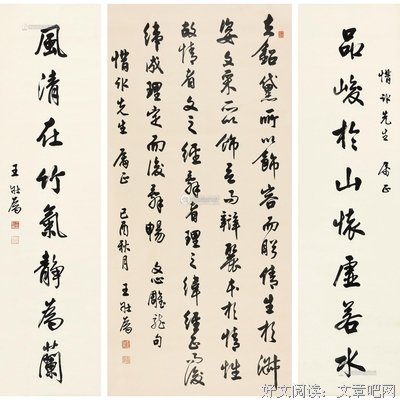 品峻於山懷虛若水
惜冰先生 屬正
夫鉛黛所以飾容而盼倩生於淑
姿文采所以飾言而辯麗本於情性
故情者文之經辭者理之緯經正而後
緯成理定而後辭暢 文心雕龍句
惜冰先生 屬正 己酉秋月 王壯為
風清在竹氣靜為蘭
王壯為
好文阅读:文章吧网